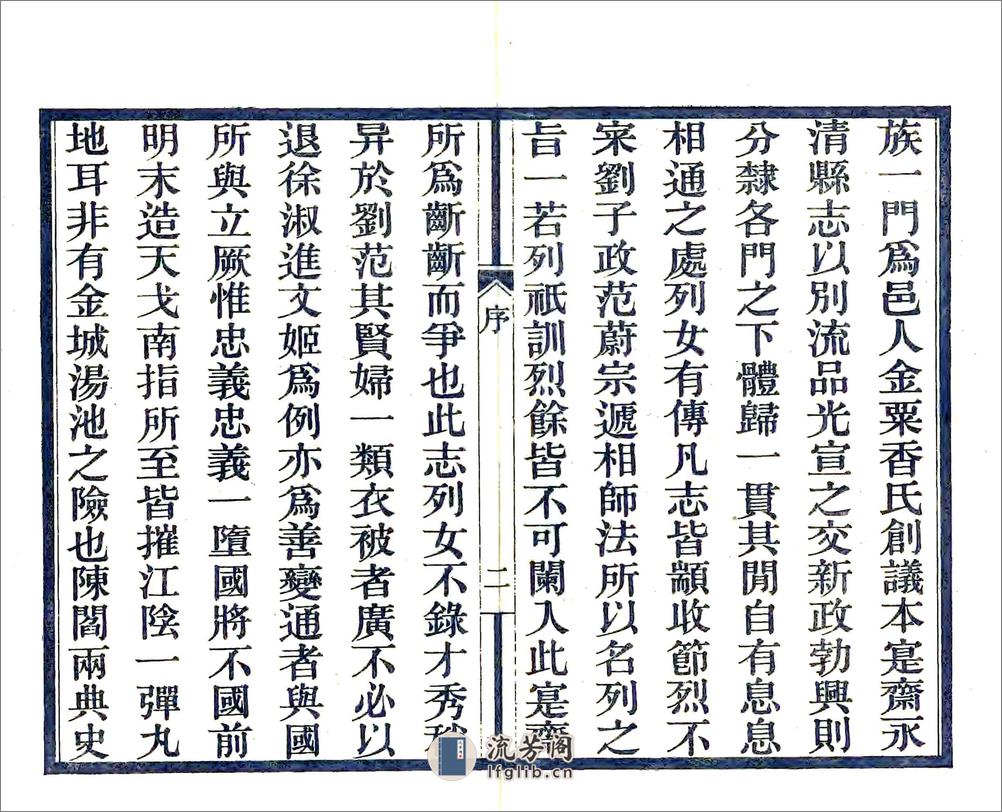 族一門爲邑人金粟香氏創議本寔齋永
清縣志以別流品光宣之交新政勃興則
分隸各門之下體歸一貫其閒自有息息
相通之處列女有傳凡志皆顓收節烈不
寀劉子政范蔚宗遞相師法所以名列之
旨一若列祇訓烈餘皆不可闌入此寔齋
序
二
所爲齗齗而爭也此志列女不錄才秀
异於劉范其賢婦一類衣被者廣不必以
退徐淑進文姬爲例亦爲善變通者與國
所與立厥惟忠義忠義一墮國將不國前
明末造天戈南指所至皆摧江陰一彈丸
地耳非有金城湯池之險也陳閻兩典史
流芳阁
lfglib.cn